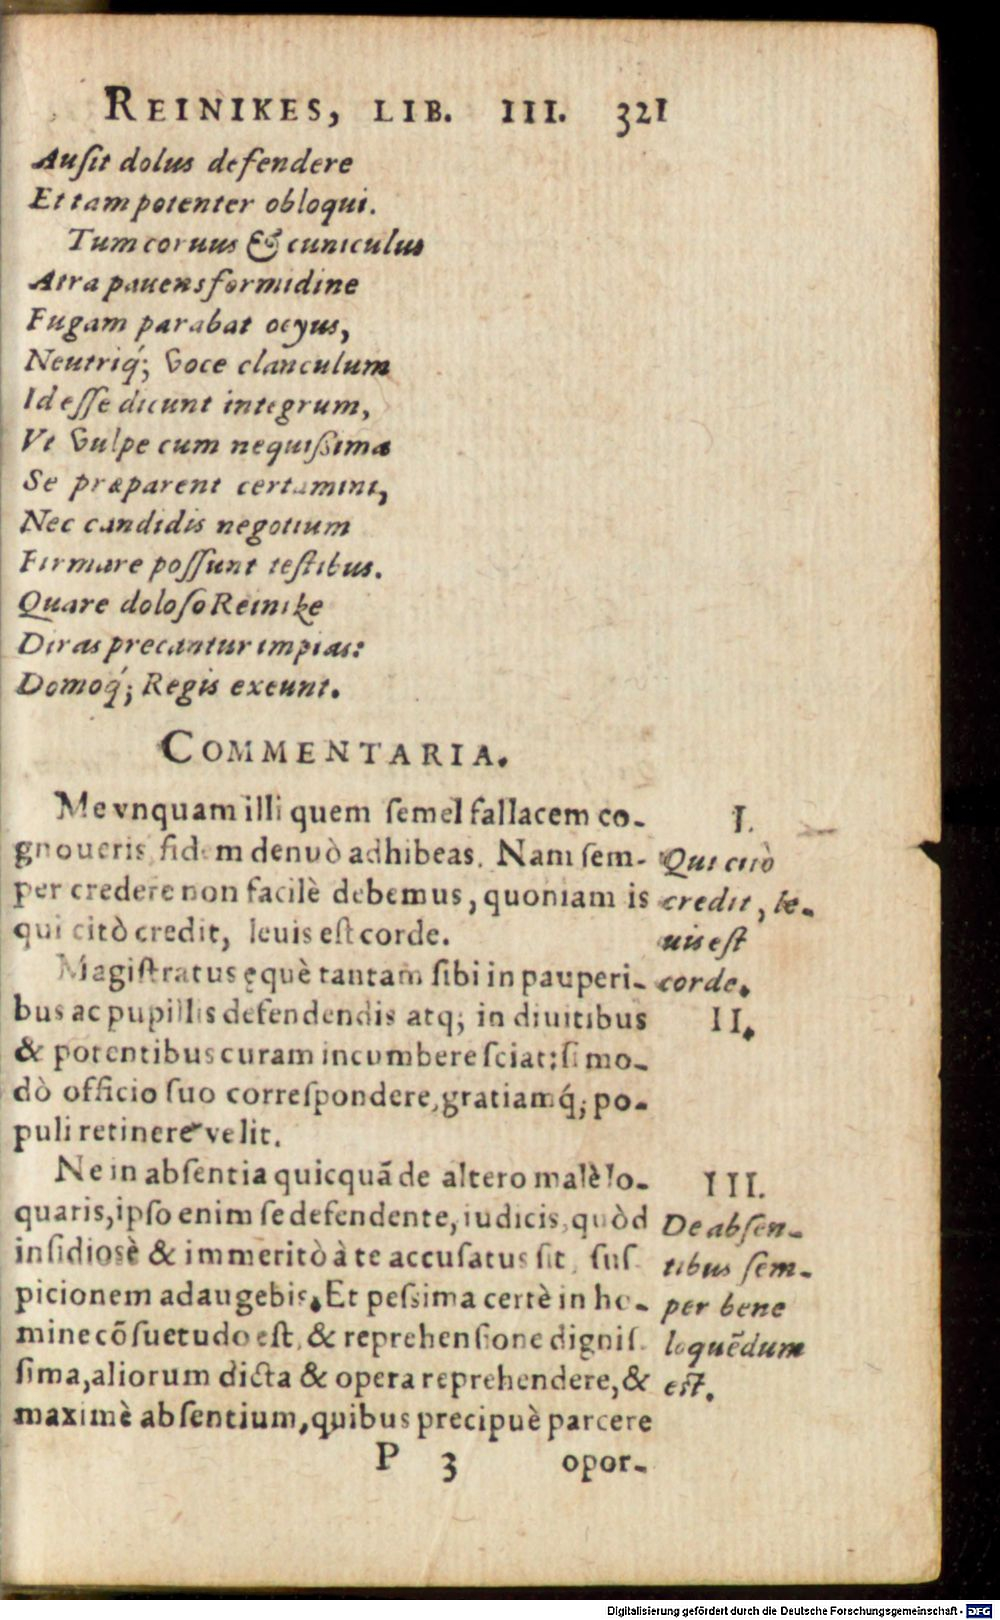 REINIKES, LIB. III. 321
Auſit dolus defendere
Et tam potenter obloqui.
Tum coruus & cuniculus
Atra pauens formidine
Fugam parabat ocyus,
Neutriq́; voce clanculum
Id eſſe dicunt integrum,
Vt vulpe cum nequiſsima
Se præparent certamini,
Nec candidis negotium
Firmare poſſunt teſtibus.
Quare doloſo Reinike
Diras precantur impias:
Domoq́; Regis exeunt.
COMMENTARIA.
Me vnquam illi quem ſemel fallacem co-
gnoueris fidem denuò adhibeas. Nam ſem-
per credere non facilè debemus, quoniam is
qui citò credit, leuis eſt corde.
I.
Qui citò
credit, le-
uis eſt
corde.
Magiſtratus ęquè tantam ſibi in pauperi-
bus ac pupillis defendendis atq; in diuitibus
& potentibus curam incumbere ſciat: ſi mo-
dò officio ſuo correſpondere, gratiamq́; po-
puli retinere velit.
II.
Ne in abſentia quicquã de altero malè lo-
quaris, ipſo enim ſe defendente, iudicis, quòd
inſidiosè & immeritò à te accuſatus ſit, ſuſ
picionem adaugebis. Et peſsima certè in ho-
mine cõſuetudo eſt, & reprehenſione digniſ
ſima, aliorum dicta & opera reprehendere, &
maximè abſentium, quibus precipuè parcere
III.
De abſen-
tibus ſem-
per bene
loquẽdum
eſt.
P 3 opor-
Digitalisierung gefördert durch die Deutsche Forschungsgemeinschaft - DFG